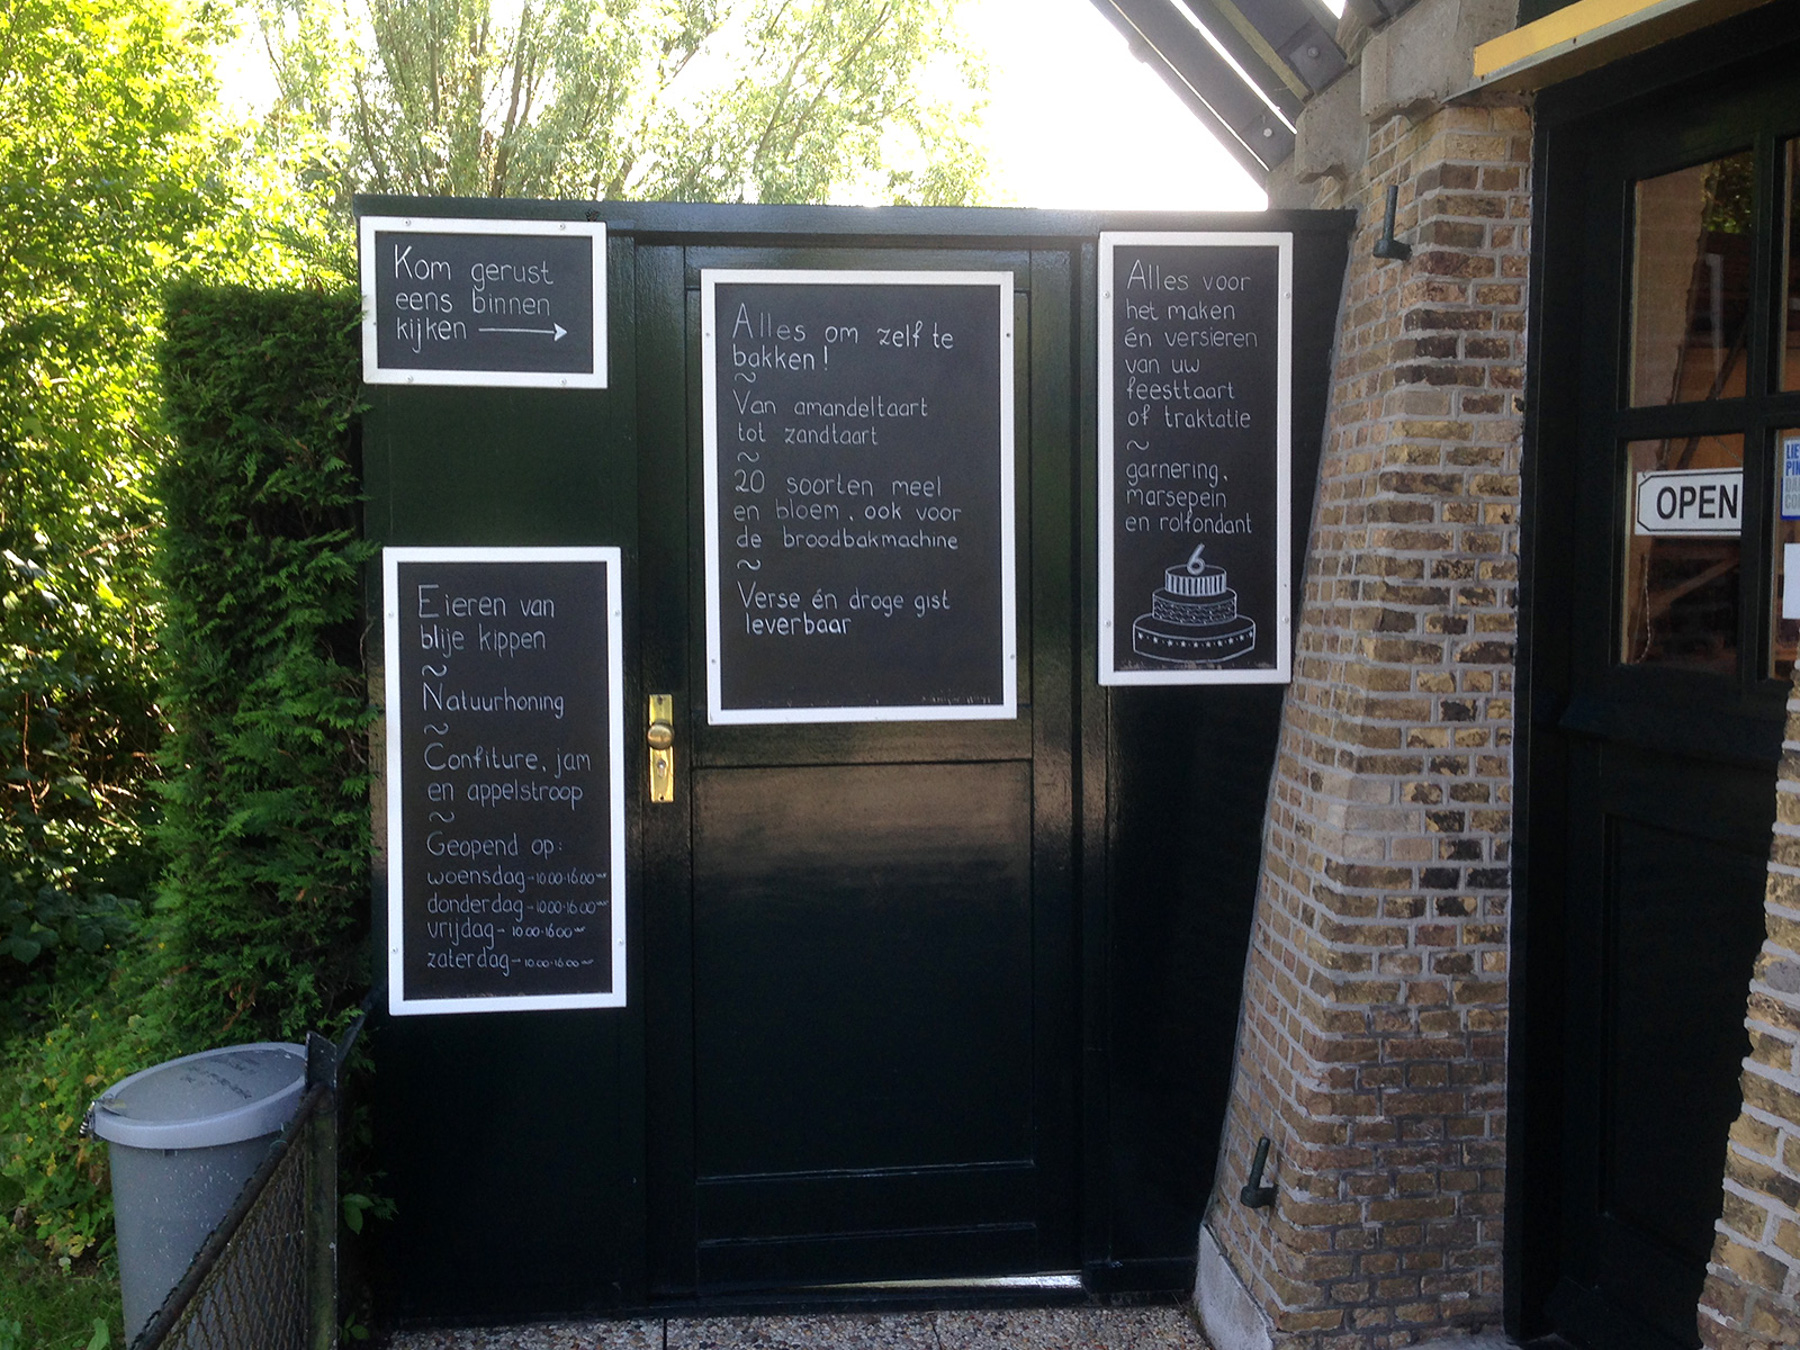 Kom gerust
eens binnen
kijken
Eieren van
blije kippen
~
Natuurhoning
~
Confiture, jam
en appelstroop
~
Geopend op:
woensdag - 10.00-16.00
donderdag - 10.00-16.00
vrijdag - 10.00-16.00
zaterdag - 10.00-16.00
Alles om zelf te
bakken!
~
Van amandeltaart
tot zandtaart
~
20 soorten meel
en bloem, ook voor
de broodbakmachine
~
Verse én droge gist
leverbaar
Alles voor
het maken
én versieren
van uw
feesttaart
of traktatie
~
garnering,
marsepein
en rolfondant
6
OPEN